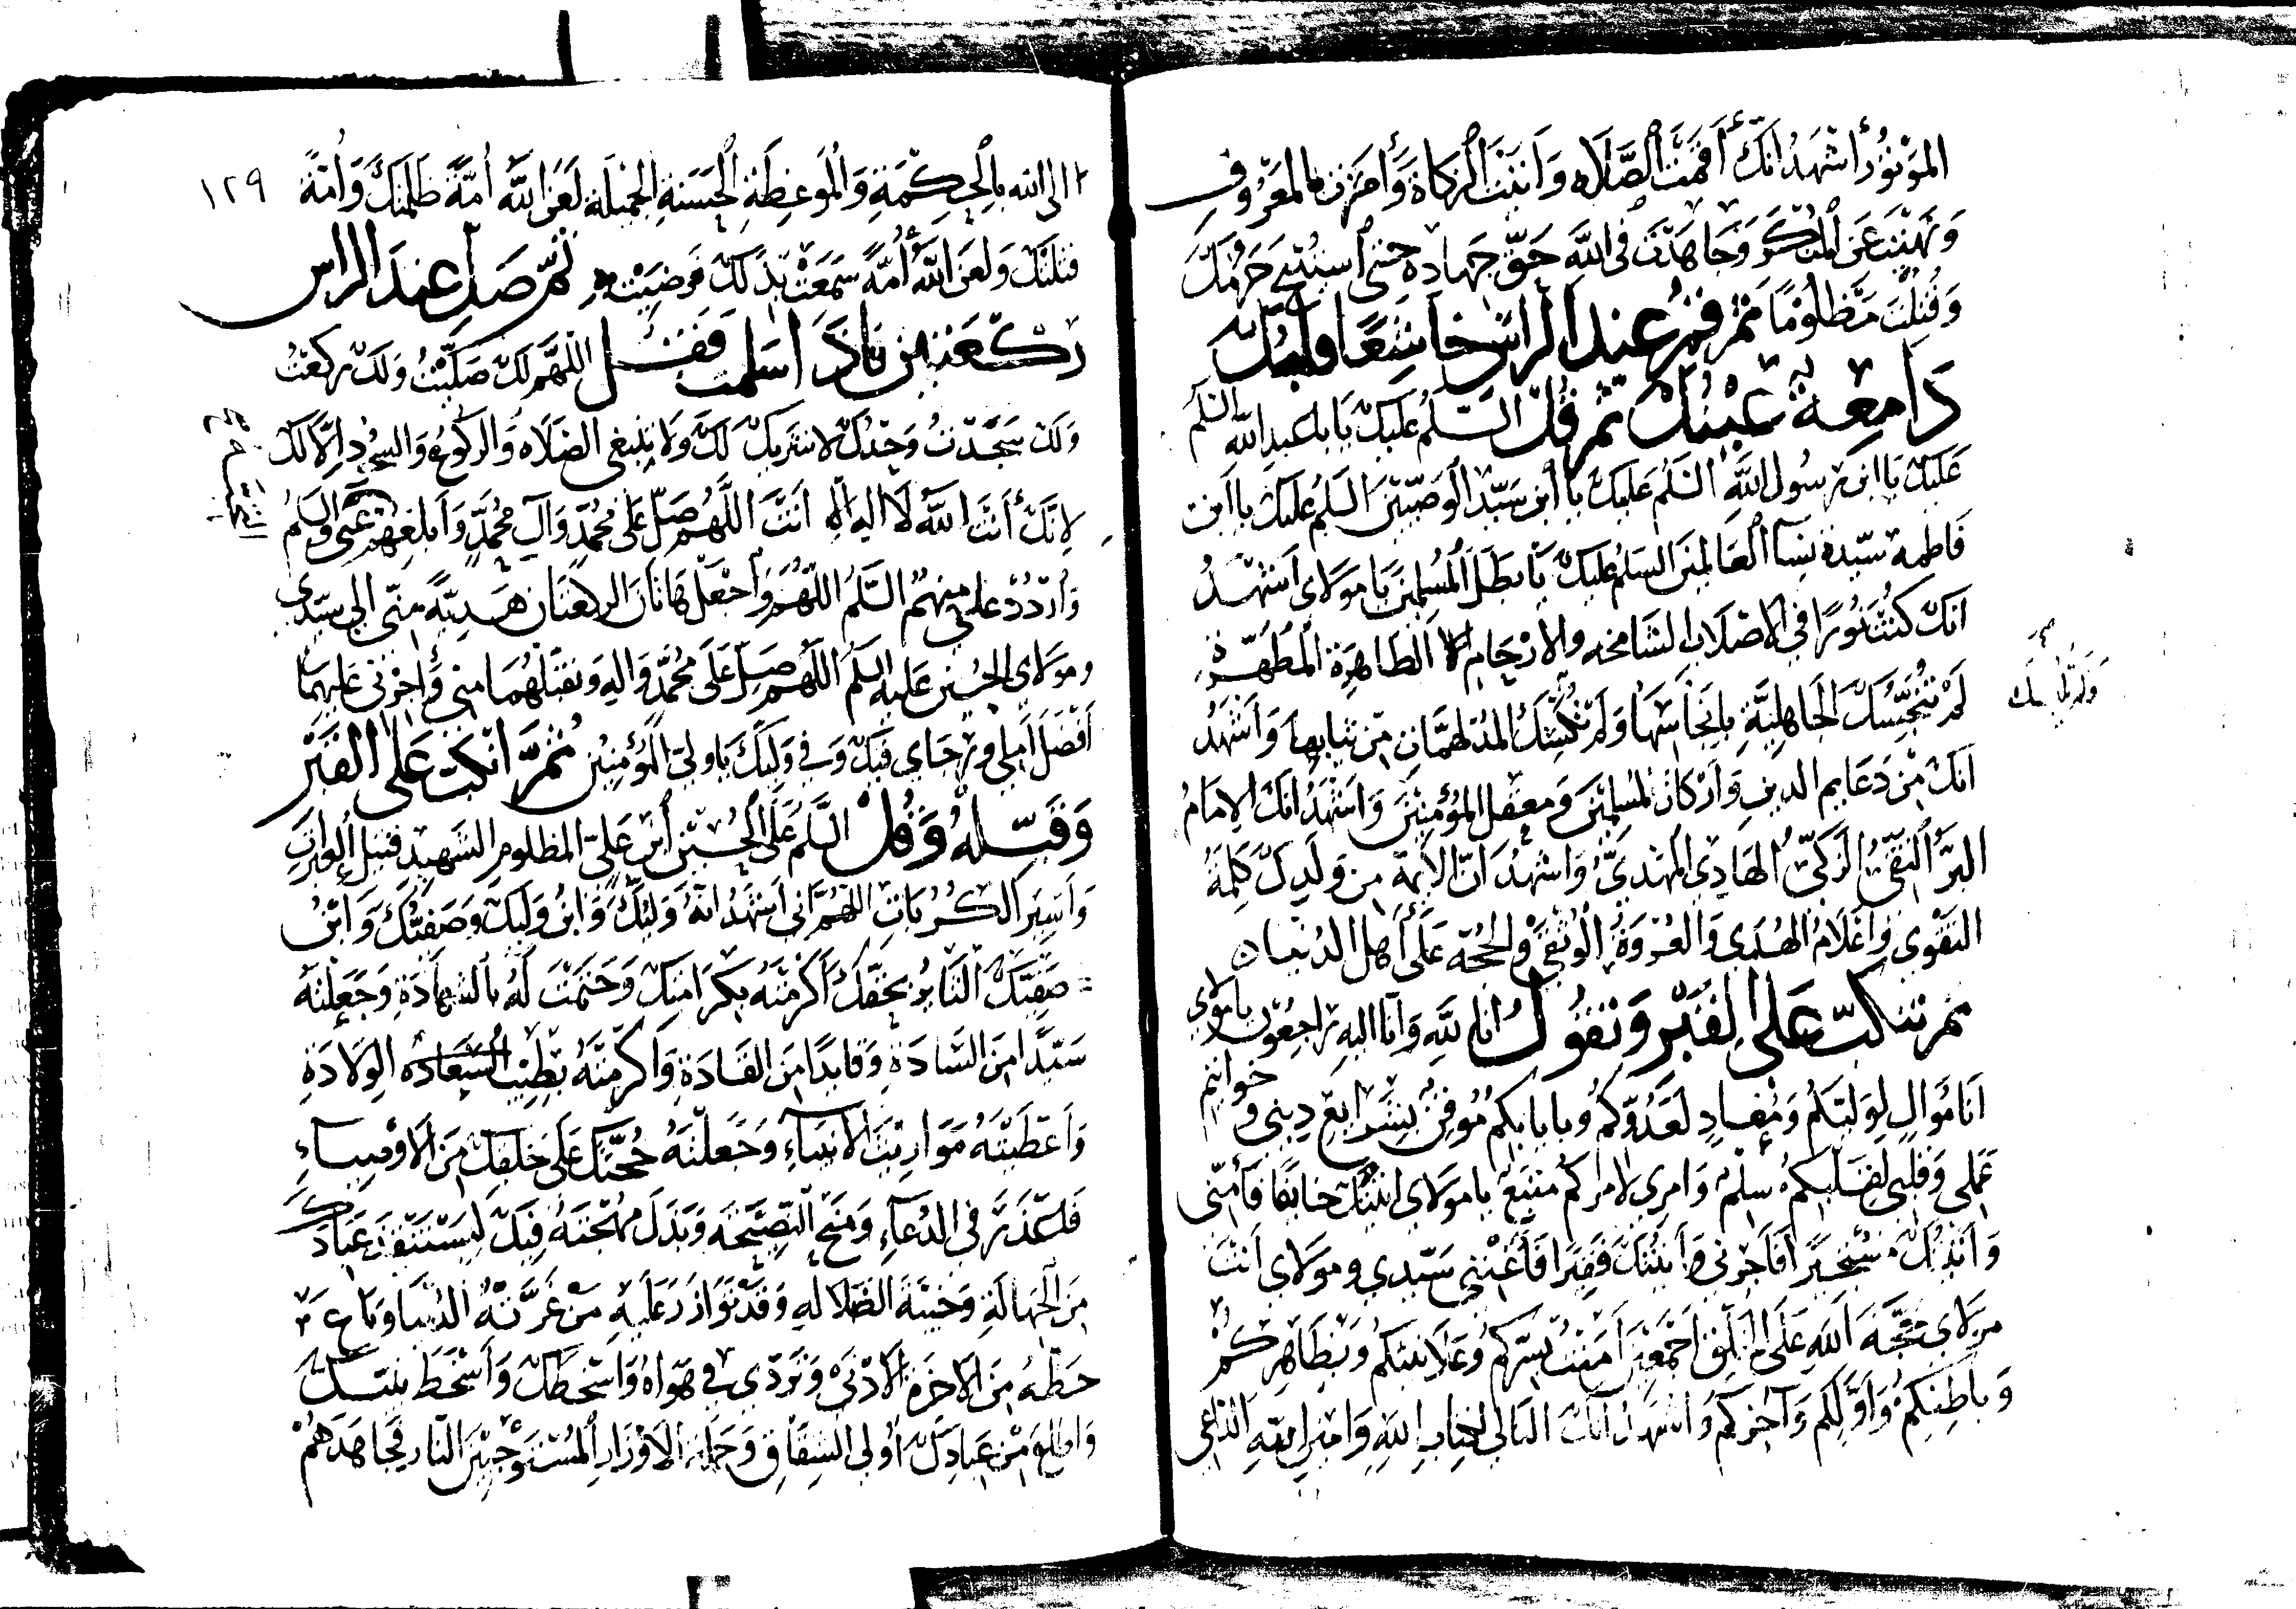 الموتورُ أشهَدُ انّكَ أقمَتَ الصَّلَاه وَاتَيتَ الزكاةَ وَأمَرتَ بالمعَرُوفِ
وَنَهَيْتَ عَن المنكَر وَجَاهَدتَ في اللهِ حَقّ جهاده حتى استُبيحَ حَرَمُكَ
وَقُتِلْتَ مَظلُومًا ثمّ قُمْ عندَ الراسِ خاشِعًا وَلبُكَ
دَامِعَة عَيْنُكَ ثمّ قُلْ السَّلمُ عَلَيكَ يَا ابا عَبدِ الله السَّلمُ
عَلَيكَ يَا ابن رسُول اللهِ السَّلمُ عَليكَ يا ابن سَيّدِ الوَصِيّينَ السَّلمُ عَليكَ يا ابن
فَاطِمة سيّدة نِسآ العَالمينَ السَلمُ عَليكَ يَا بَطَلَ المُسلِمينَ يَا مَولاي اَشهَدُ
انّكَ كُنتَ نُورًا في الاصْلَاب الشَامخه والارْحَامِ الطَاهِرَة المُطَهّرةِ
لَم تُنَجِّسْكَ الجَاهِلِيَّة بِاَنجَاسِهَا وَلم تُلْبِسْكَ المُدْلهمَّات مِن ثيَابِهَا وَاَشهَدُ
انّكَ مِن دَعَايم الدين وَاَركانِ المُسلِمينَ وَمَعقل المُؤمنِينَ وَاَشهَدُ انّكَ الامَامُ
البَرُّ التقيّ الزكيّ الهَادِي المَهْديّ وَاَشهَدُ انّ الايمة من وَلَدِكَ كَلمَةُ
التَقْوى وَاَعْلَامُ الهُدَى وَالعُرْوَةُ الوُثْقَى والحُجّة عَلَى اَهل الدنيا
ثم تنكبّ عَلى القَبْر وَتقُولُ انا للهِ وَانا اليهِ راجعُون يا مولاي
اَنَا مُوَالٍ لِوَليّكم وَمُعَادٍ لعَدُوّكم وبايابكم مُوقنٌ بِشَرايع ديني وخواتيم
عَملي وَقلبي لقَلبكم سِلمٌ وَامري لامركم متبعٌ يا مَولاي اتيتُكَ خايفًا فامنّي
وَاتيتُكَ مستجيرًا فَاَجرني وَاَتيتُكَ فَقيرًا فَاَغنني سَيّدي ومولاي اَنتَ
مولاي حُجّة اللهِ عَلَى الخلق اَجمعينَ اَمَنتُ بسرّكم وَعَلَانيتكم وَبظَاهِركُم
وَباطنكم وَاَوّلكم وَآخركم وَاشهَدُ انّكَ التالي لكتابِ اللهِ وَامينُ اللهِ الدَاعي
ولم تلبسك
١٢٩
الى الله بالحِكمَةِ وَالمَوعظَةِ الحَسَنةِ الجميلَة لَعَنَ اللهُ اُمّةً ظَلمتكَ وَاُمّةً
قتلتكَ وَلَعَنَ اللهُ اُمّةً سَمعَتْ بِذَلكَ فَرَضِيَتْ بهِ ثمّ صَلّ عندَ الراسِ
ركعَتين فاذَا سَلمتَ فقُل اللّهمّ لكَ صَلّيتُ وَلكَ ركعتُ
وَلكَ سَجَدتُ وَحدَكَ لا شريكَ لكَ ولَا ينبَغي الصَلَاه وَالركوعُ وَالسجودُ اِلّا لكَ
لانّكَ اَنتَ اللهُ لَا اله الا اَنتَ اللّهُم صَلّ عَلى مُحمّدٍ وَآلِ مُحمّدٍ وَاَبلغهُم عنّي السلمُ
وَاُردُد عَليّ منهُم السَّلمُ اللّهُم وَاجْعَل هَاتانِ الركعتَان هَديّةً مني الى سيّدي
ومَولاي الحُسَين عَليه السلمُ اللّهُم صَلِّ عَلَى مُحمّدٍ وَالهِ وَتقبّلهُمَا مني وَاجزني عَليهما
اَفضَلَ اَملي ورجَاي فيكَ وَفي وَليّكَ يا وليّ المُؤمنينَ ثمّ انكبّ عَلى القَبْر
وَقبّلهُ وَقُلْ السَّلمُ عَلَى الحُسَين ابن عَليّ المظلوم الشَهِيد قَتيلِ العَبَراتِ
وَاَسيرِ الكُرُبَاتِ اللهُمّ اني اَشهَدُ انهُ وَليّكَ وَابنُ وَليّكَ وَصَفيُّكَ وَابنُ
صَفيّكَ الثايرُ بحقّكَ اَكرَمتَهُ بكَرَامَتكَ وَخَتَمتَ لَهُ بالشهادَةِ وَجَعلتهُ
سَيّدًا منَ السَّادَةِ وَقايدًا منَ القَادَةِ وَاَكرَمتَهُ بطيب الوِلادَةِ
وَاَعطَيتَهُ مَوَارِيثَ الاَنبيَآءِ وَجَعلتَهُ حُجّتَكَ عَلى خَلقكَ مِنَ الاَوصِيآءِ
فَاَعذَرَ في الدُعَآءِ وَمنحَ النّصيحَه وَبَذَلَ مُهْجَتهُ فيكَ ليَستَنقذَ عبَادكَ
مِنَ الجَهالَةِ وَحيرَةِ الضَلالهِ وَقَد تَوَازرَ عَليهِ مَن غَرّتهُ الدُنيَا وَبَاعَ
حَظّهُ مِن الاخرَةِ الادْنَى وَتَردّى في هَوَاهُ وَاَسخطكَ وَاَسخَطَ نبيّكَ
وَاطاعَ مِن عبَادكَ اُولي الشِقَاقِ وَحَملة الاوزَارِ المُستَوجبينَ النَار فجَاهَدَهُم